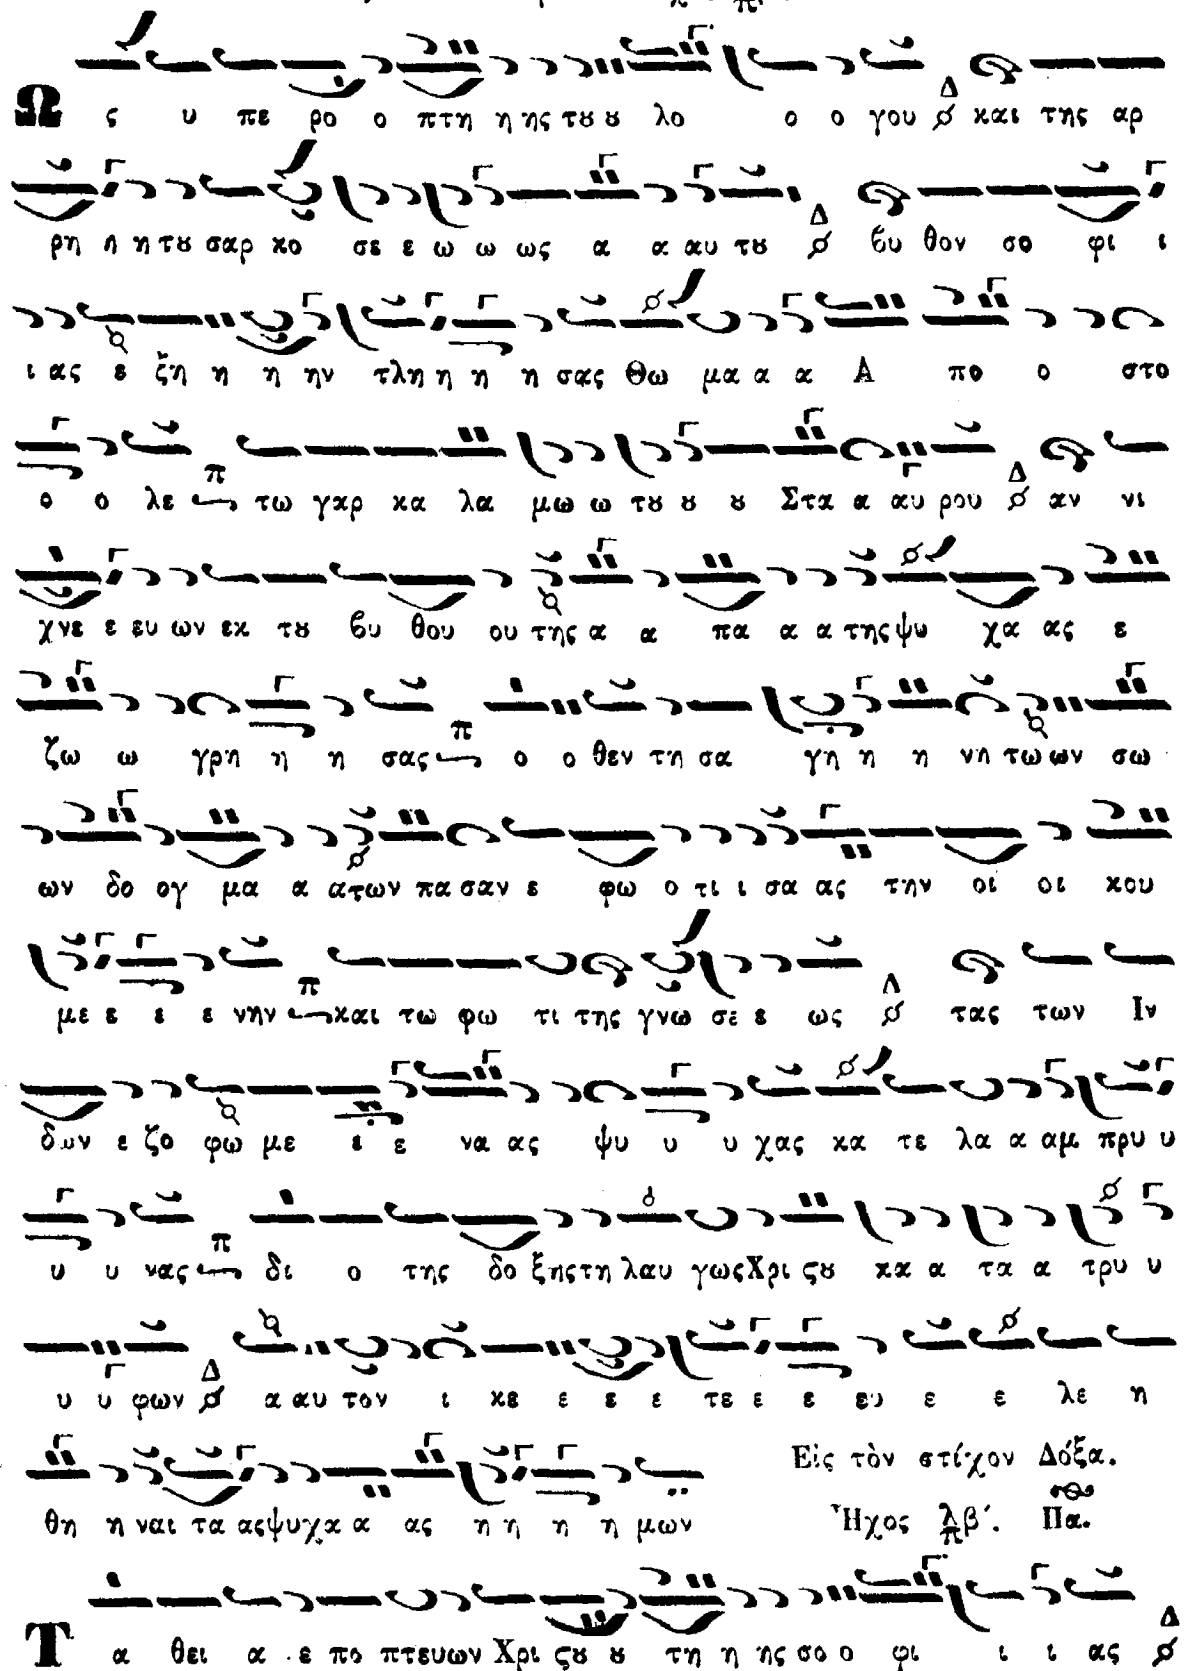 Ως υ πε ρο ο πτη η ης τȣ ȣ λο ο ο γου Δ και της αρ
ρη η η τȣ σαρ κο σε ε ω ω ως α α αυ τȣ Δ βυ θον σο φι ι ι
ι ας ε ξη η η ην τλη η η η σας Θω μα α α Α πο ο στο
ο ο λε π τω γαρ κα λα μω ω τȣ ȣ ȣ Στα α αυ ρου Δ αν νι
χνε ε ευ ων εκ τȣ βυ θου ου της α α πα α α της ψυ χα ας ε
ζω ω γρη η η σας π ο ο θεν τη σα γη η η νη τω ων σω
ων δο ογ μα α ατων πα σαν ε φω ο τι ι σα ας την οι οι κου
με ε ε ε νην π και τω φω τι της γνω σε ε ως Δ τας των Ιν
δων ε ζο φω με ε ε να ας ψυ υ υ χας κα τε λα α αμ πρυ υ
υ υ νας π δι ο της δο ξης τη λαυ γως Χρι ςȣ κα α τα α τρυ υ
υ υ φων Δ α αυ τον ι κε ε ε ε τε ε ε ευ ε ε λε η
θη η ναι τα ας ψυχα α ας η η η η μων
Εἰς τὸν στίχον Δόξα.
Ἦχος λ π β΄. Πα.
Τα θει α ε πο πτευων Χρι ςȣ ȣ τη η ης σο ο φι ι ι ας Δ